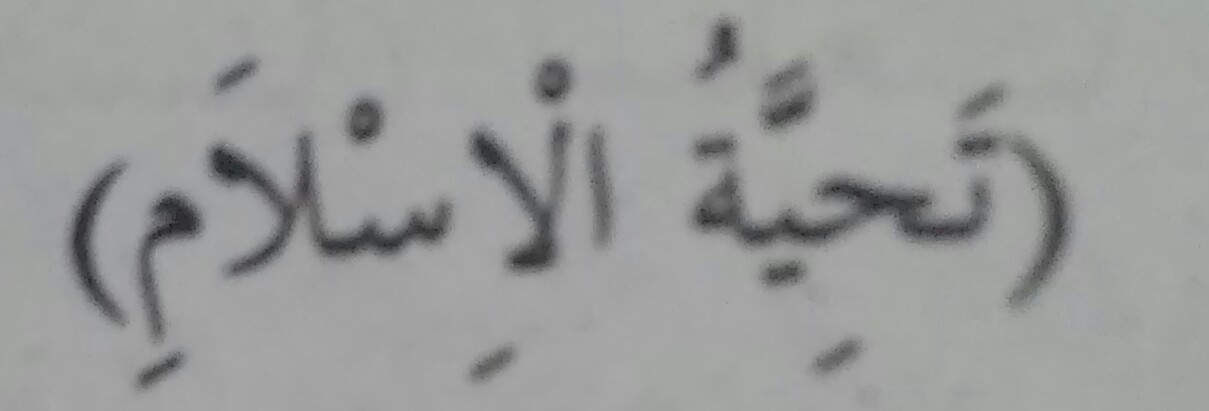 (تَحِيَّةُ الْاِسْلَامِ)